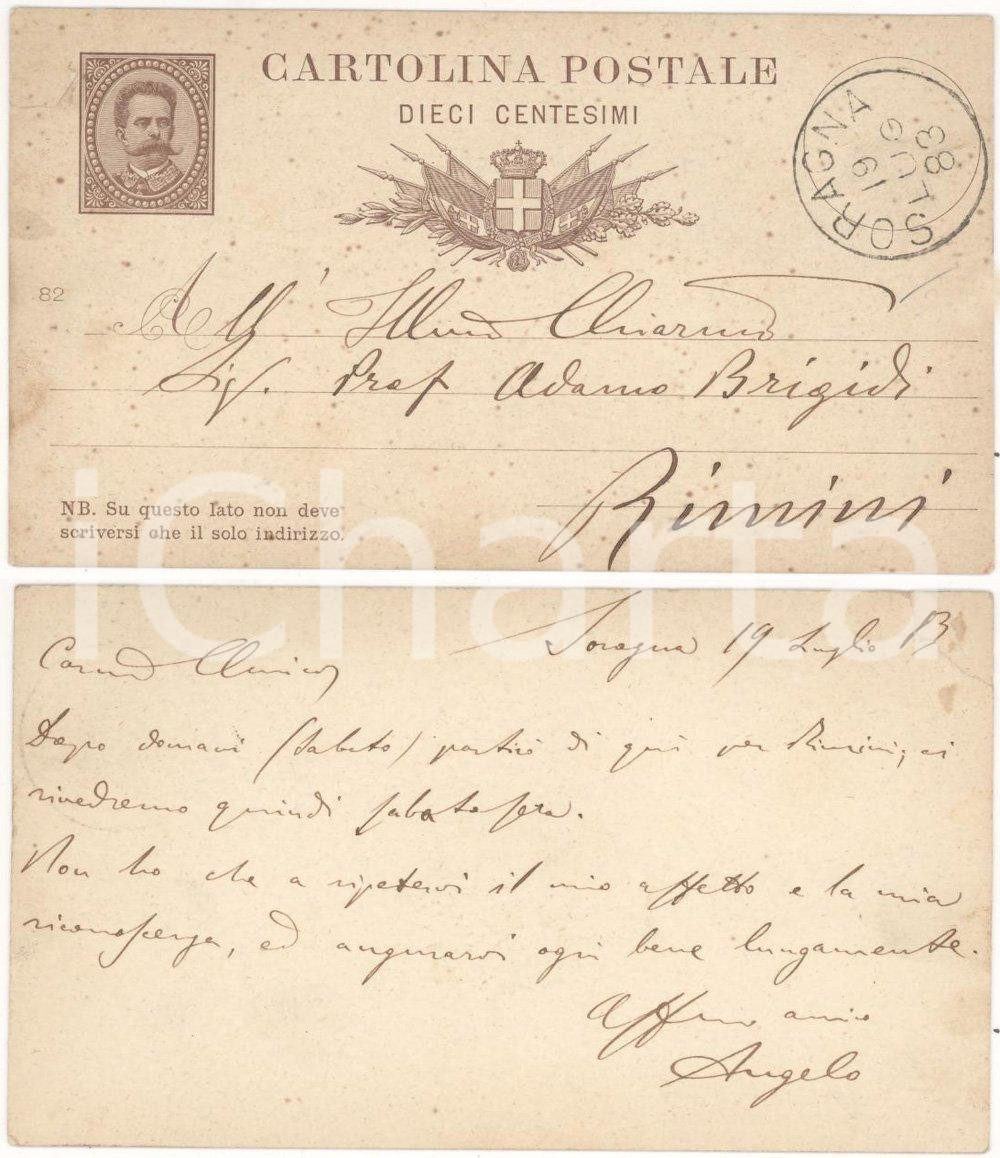 CARTOLINA POSTALE
DIECI CENTESIMI
SORAGNA
19 LUG 83
82
All' Illmo Chiarmo
Sig. Prof Adamo Brigidi
Rimini
NB. Su questo lato non deve
scriversi che il solo indirizzo.
iCharta
Soragna 19 Luglio 83
Carmo Amico,
Dopo domani (Sabato) partirò di qui per Rimini; ci
rivedremo quindi sabato sera.
Non ho che a ripetervi il mio affetto e la mia
riconoscenza, ed augurarvi ogni bene lungamente.
Affmo amico
Angelo